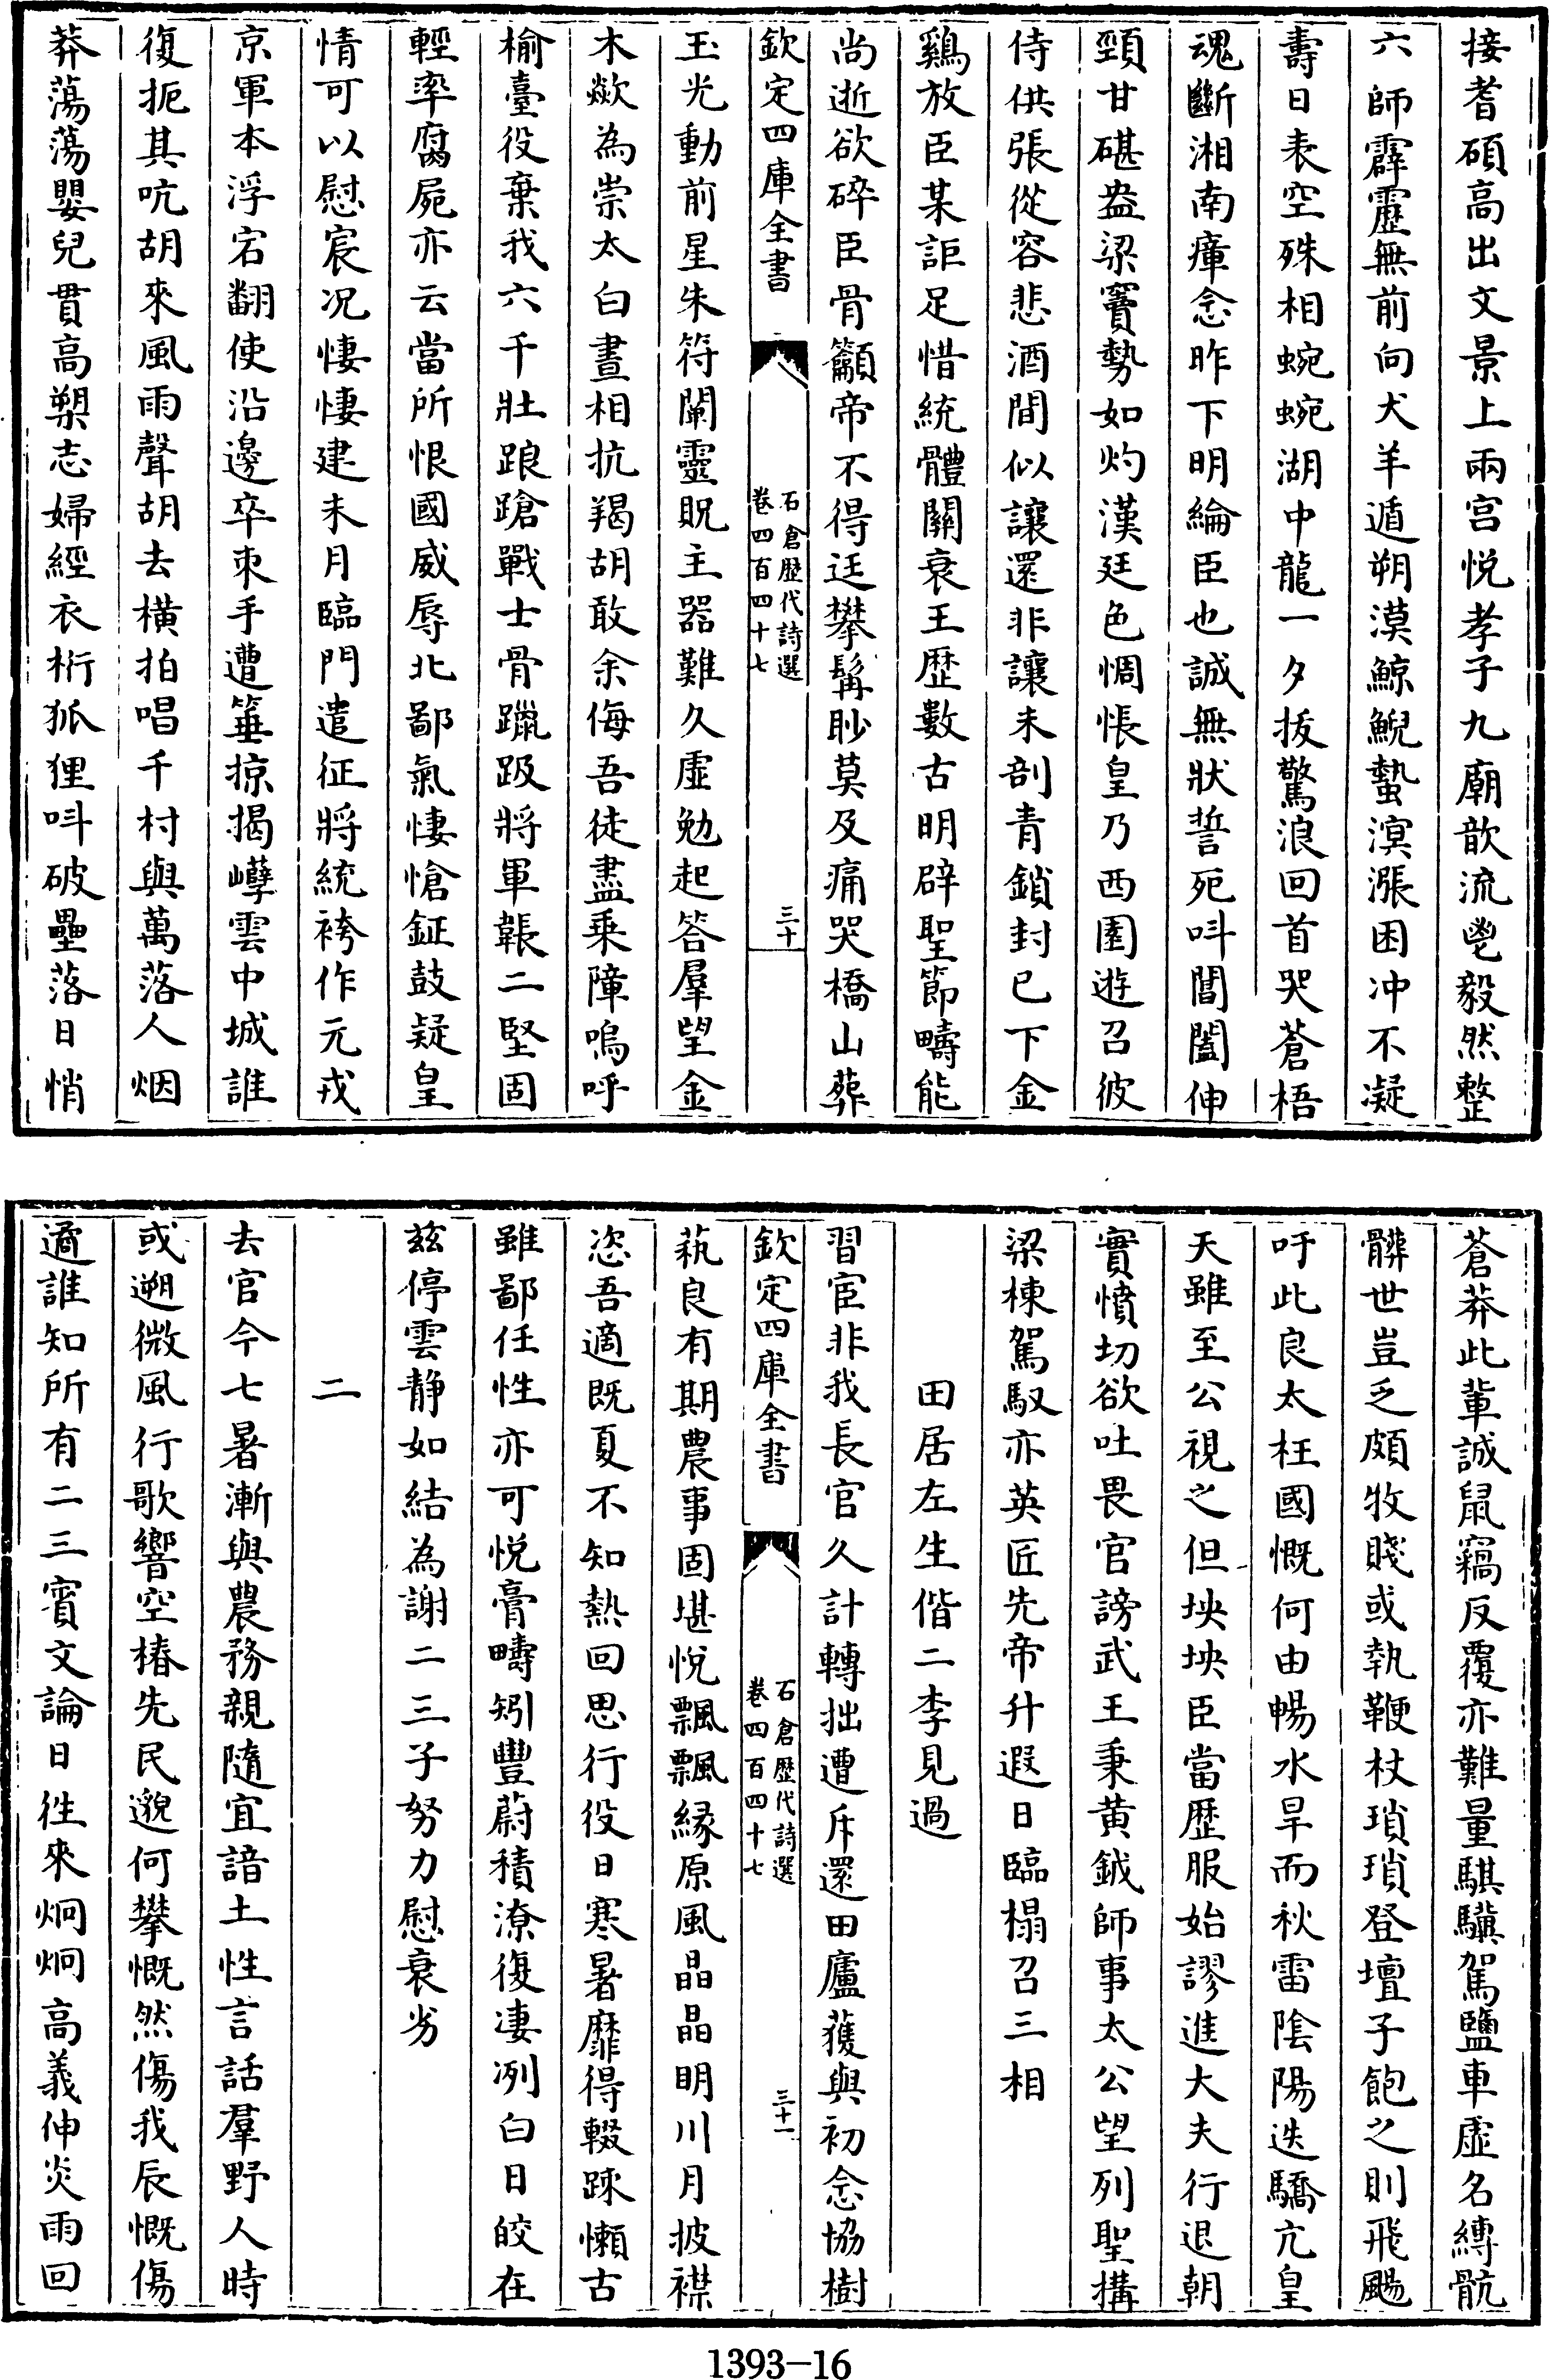 接耆碩高出文景上兩宮悦孝子九廟歆流鬯毅然整
六師霹靂無前向犬羊遁朔漠鯨鯢蟄溟漲困冲不凝
壽日表空殊相蜿蜿湖中龍一夕拔驚浪回首哭蒼梧
魂斷湘南瘴念昨下明綸臣也誠無狀誓死呌閶闔伸
頸甘碪盎梁竇勢如灼漢廷色惆悵皇乃西園遊召彼
侍供張從容悲酒間似讓還非讓未剖青鎖封已下金
鷄放臣某詎足惜統體關衰王歷數古明辟聖節疇能
尚逝欲碎臣骨籲帝不得迋攀髯眇莫及痛哭橋山葬
欽定四庫全書
石倉歷代詩選
卷四百四十七
三十
玉光動前星朱符闡靈貺主器難久虛勉起答羣望金
木歘為祟太白晝相抗羯胡敢余侮吾徒盡乗障嗚呼
榆臺役棄我六千壯踉蹌戰士骨躐跋將軍韔二堅固
輕率腐屍亦云當所恨國威辱北鄙氣悽愴鉦鼓疑皇
情可以慰宸况悽悽建未月臨門遣征將統袴作元戎
京軍本浮宕翻使沿邊卒束手遭箠掠揭㠥雲中城誰
復扼其吭胡來風雨聲胡去横拍唱千村與萬落人烟
莽蕩蕩嬰兒貫高槊志婦經衣桁狐狸呌破壘落日悄
蒼莽此輩誠鼠竊反覆亦難量騏驥駕鹽車虛名縳骯
髒世豈乏頗牧賤或執鞭杖瑣瑣登壇子飽之則飛颺
吁此良太枉國慨何由暢水旱而秋雷陰陽迭驕亢皇
天雖至公視之但坱坱臣當歴服始謬進大夫行退朝
實憤切欲吐畏官謗武王秉黄鉞師事太公望列聖搆
梁棟駕馭亦英匠先帝升遐日臨榻召三相
田居左生偕二李見過
習宦非我長官久計轉拙遭斥還田廬蒦與初念協樹
欽定四庫全書
石倉歷代詩選
卷四百四十七
三十一
蓺良有期農事固堪悅飄飄緑原風晶晶明川月披襟
恣吾適既夏不知熱回思行役日寒暑靡得輟踈懶古
雖鄙任性亦可悦膏疇矧豐蔚積潦復凄冽白日皎在
兹停雲静如結為謝二三子努力慰衰劣
二
去官今七暑漸與農務親隨宜諳土性言話羣野人時
或遡微風行歌響空椿先民邈何攀慨然傷我辰慨傷
適誰知所有二三賓文論日徃來炯炯高義伸炎雨回
1393-16